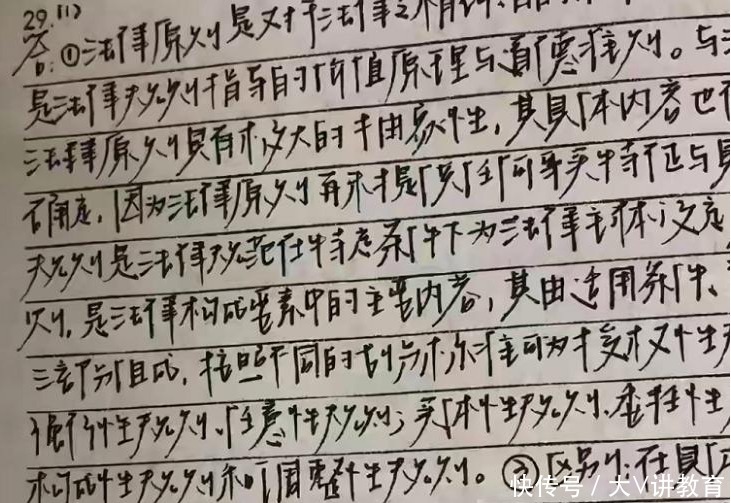 29.(1)
答:①法律原则是对于法律
是法律规则指导的价值原理与道德准则。与
法律原则具有极大的抽象性,其具体内容也
不确定,因为法律原则再来提供任何事实特征与具
规则是法律规范在特定条件下为法律主体设定
则,是法律构成要素中的主要内容,其由适用条件、
三部分组成,按照不同的划分标准可为授权性
强行性规则、任意性规则;实体性规则、委任性
构成性规则和调整性规则。②区别:在具
快传号/大V讲教育